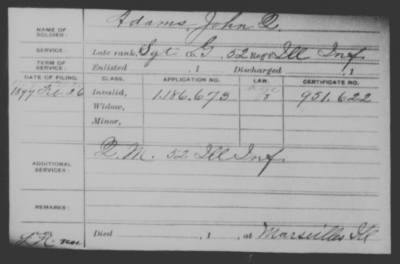 NAME OF SOLDIER: Adams, John Q.
SERVICE: Late rank, Sgt Co G, 52 Reg't Ill Inf
TERM OF SERVICE: Enlisted , 1 Discharged , 1
DATE OF FILING. CLASS. APPLICATION NO. LAW. CERTIFICATE NO.
1897 Feb 26 Invalid, 1.186.673 951.622
Widow,
Minor,
ADDITIONAL SERVICES: Q. M. 52 Ill Inf
REMARKS:
Died , 1 , at Marseilles Ill